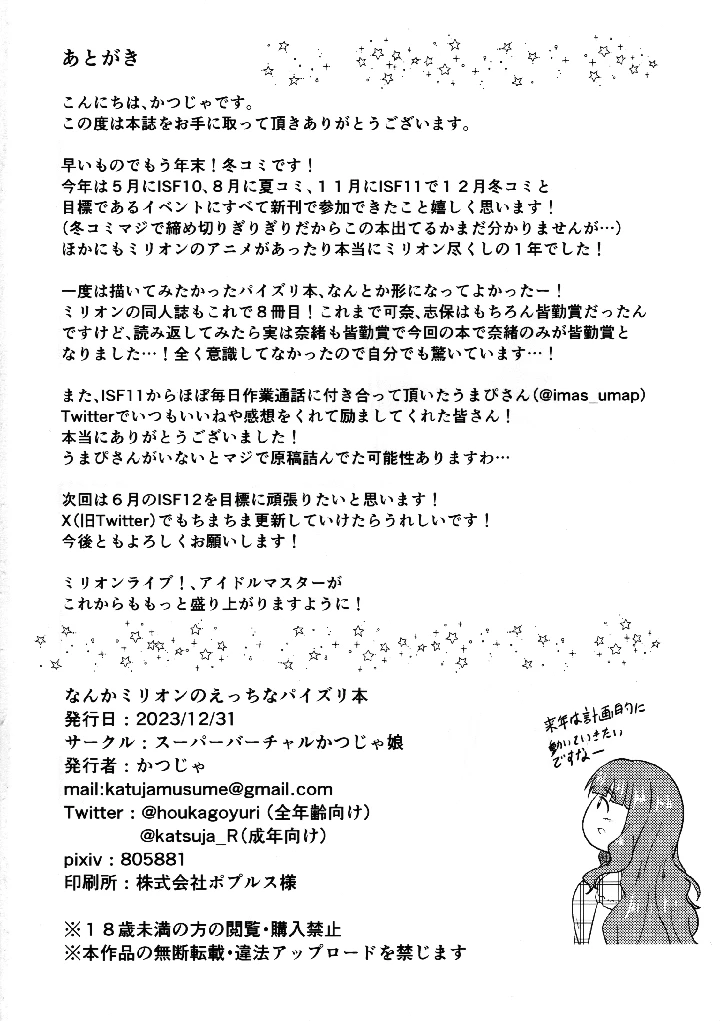 あとがき
こんにちは、かつじゃです。
この度は本誌をお手に取って頂きありがとうございます。
早いものでもう年末！冬コミです！
今年は５月にISF10、８月に夏コミ、１１月にISF11で１２月冬コミと
目標であるイベントにすべて新刊で参加できたこと嬉しく思います！
（冬コミマジで締め切りぎりぎりだからこの本出てるかまだ分かりませんが…）
ほかにもミリオンのアニメがあったり本当にミリオン尽くしの１年でした！
一度は描いてみたかったパイズリ本、なんとか形になってよかったー！
ミリオンの同人誌もこれで８冊目！これまで可奈、志保はもちろん皆勤賞だったん
ですけど、読み返してみたら実は奈緒も皆勤賞で今回の本で奈緒のみが皆勤賞と
なりました…！全く意識してなかったので自分でも驚いています…！
また、ISF11からほぼ毎日作業通話に付き合って頂いたうまぴさん（@imas_umap）
Twitterでいつもいいねや感想をくれて励ましてくれた皆さん！
本当にありがとうございました！
うまぴさんがいないとマジで原稿詰んでた可能性ありますわ…
次回は６月のISF12を目標に頑張りたいと思います！
X（旧Twitter）でもちまちま更新していけたらうれしいです！
今後ともよろしくお願いします！
ミリオンライブ！、アイドルマスターが
これからももっと盛り上がりますように！
なんかミリオンのえっちなパイズリ本
発行日：2023/12/31
サークル：スーパーバーチャルかつじゃ娘
発行者：かつじゃ
mail:katujamusume@gmail.com
Twitter：@houkagoyuri（全年齢向け）
@katsuja_R（成年向け）
pixiv：805881
印刷所：株式会社ポプルス様
※１８歳未満の方の閲覧・購入禁止
※本作品の無断転載・違法アップロードを禁じます
来年は計画的に
動いていきたい
ですなー